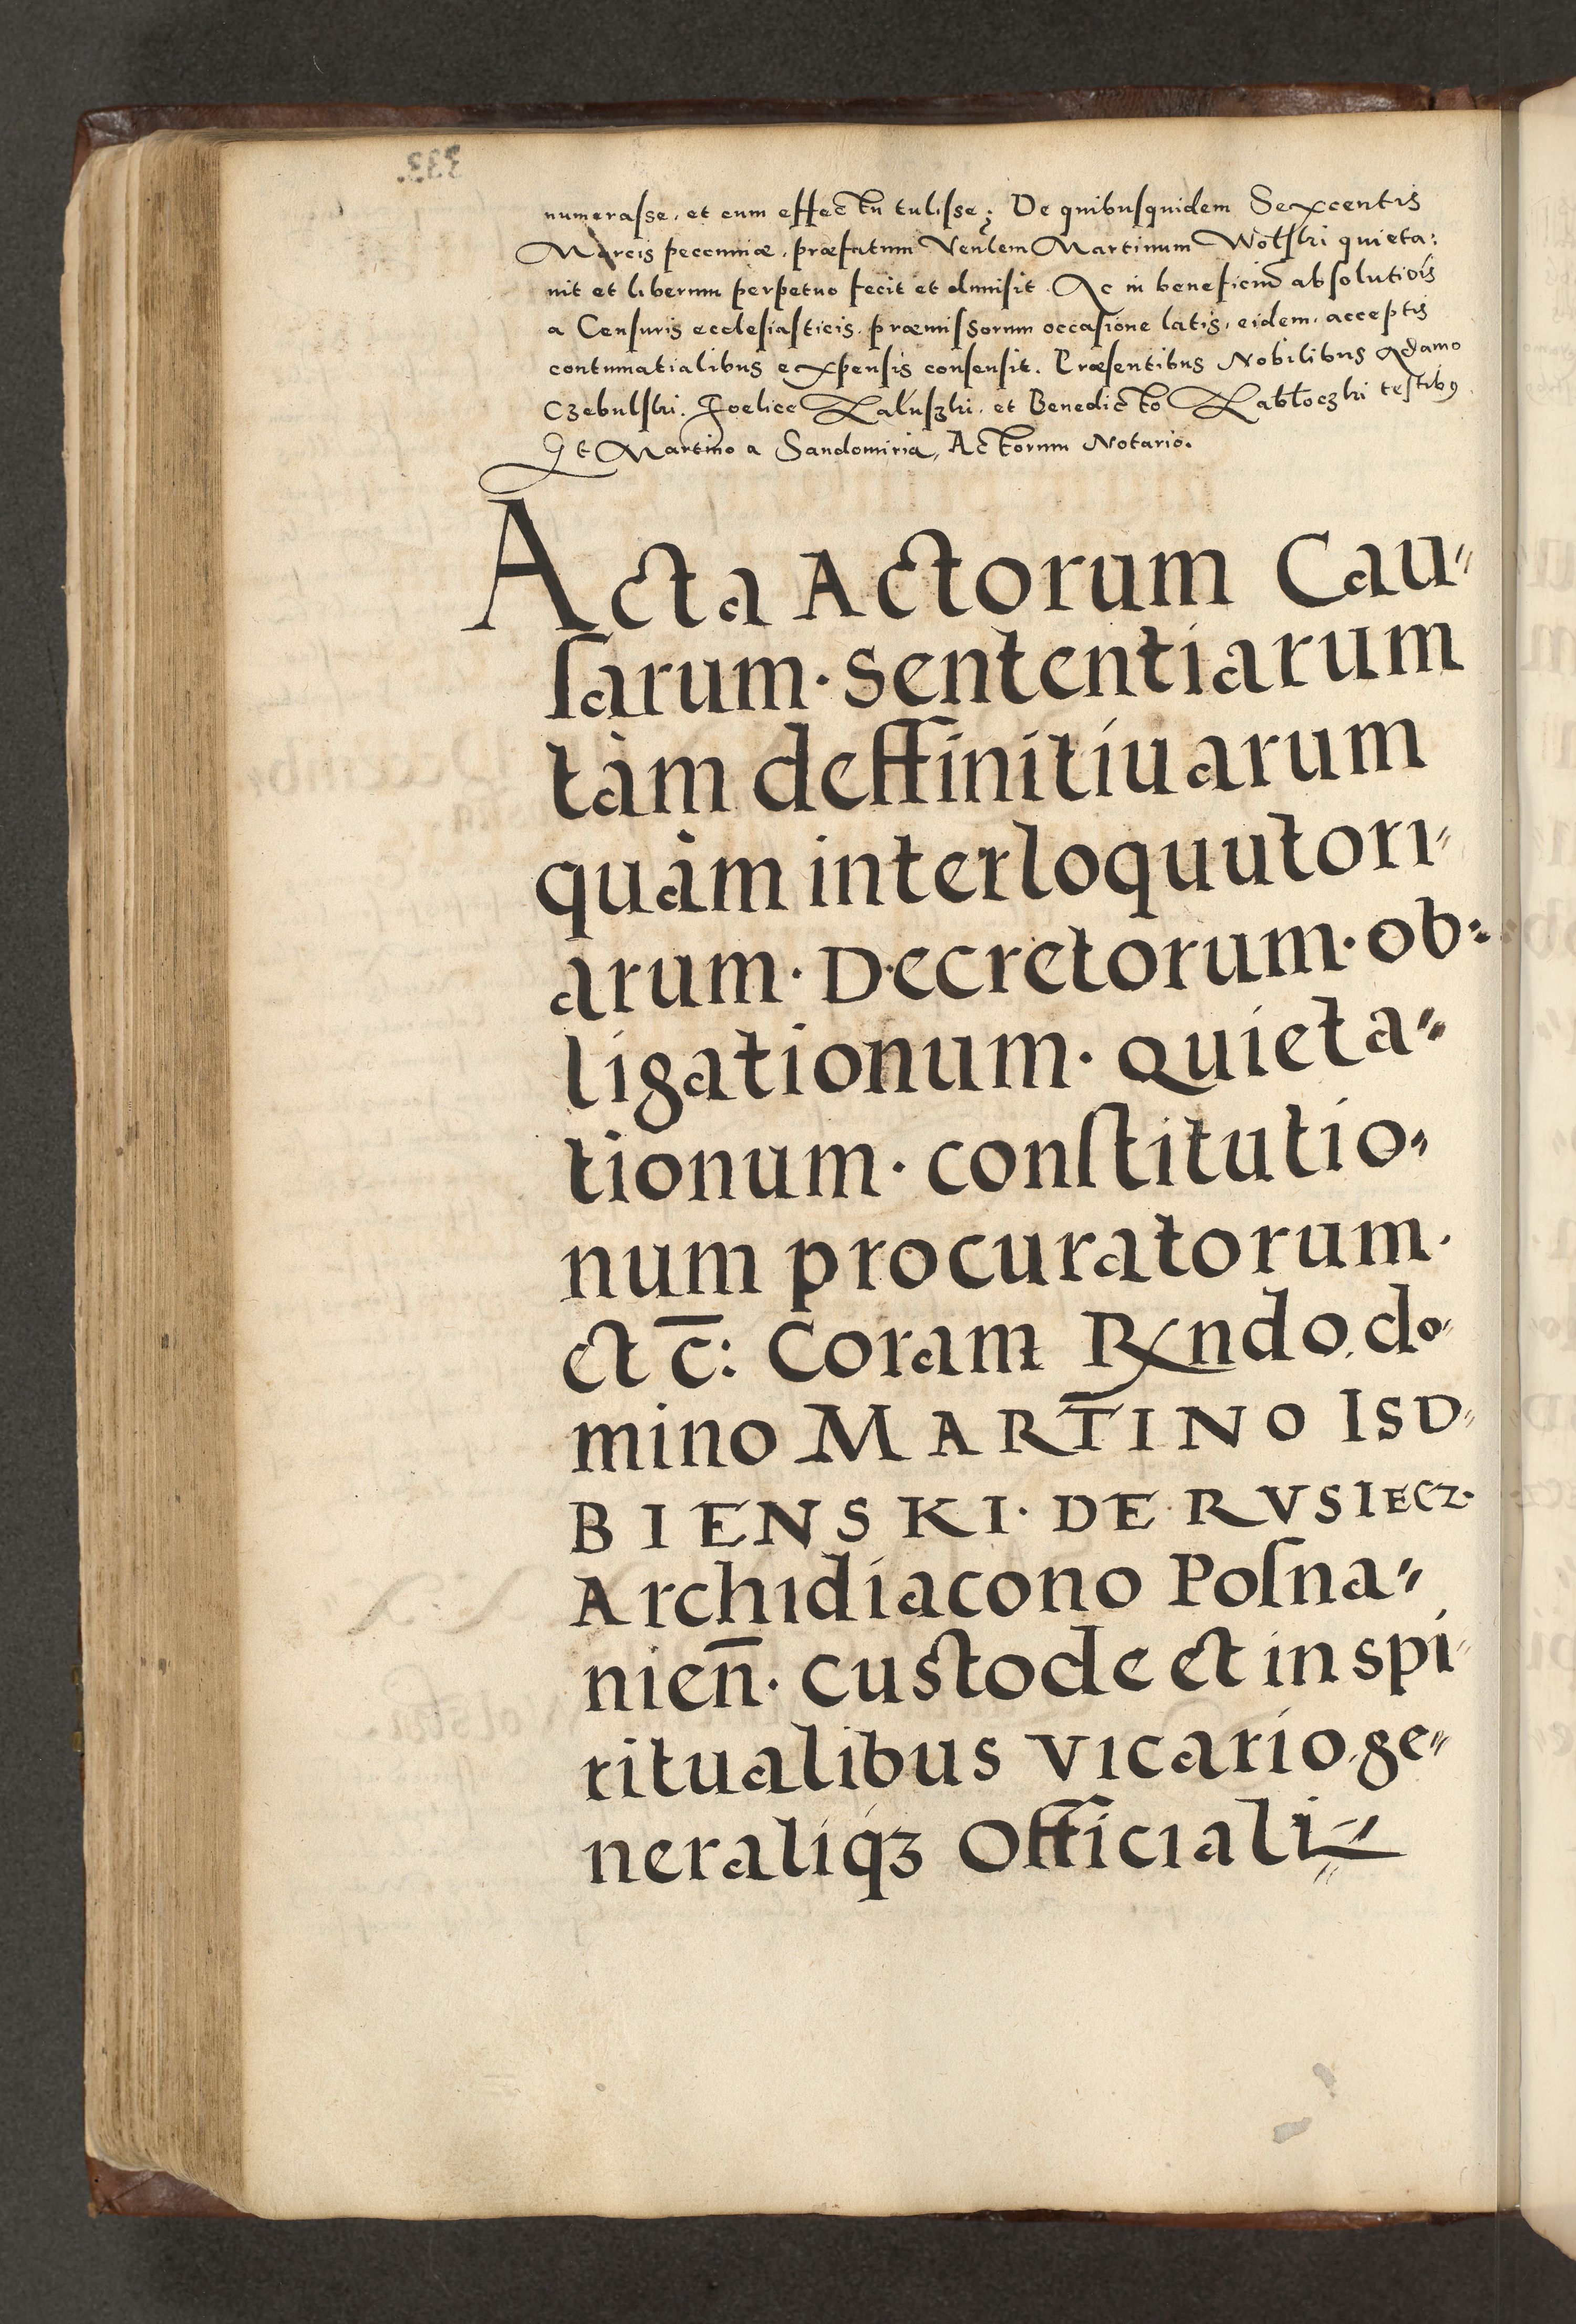 333.
numerasse, et cum effectu tulisse; De quibusquidem Sexcentis
Marcis pecuniæ, præfatum Venlem Martinum Wolski quieta:
uit et liberum perpetuo fecit et dimisit. Ac in beneficiũ absolutiois
a Censuris ecclesiasticis, præmissorum occasione latis, eidem, acceptis
contumatialibus expensis consensit. Præsentibus Nobilibus Adamo
Czebulski. Foelice Zaluszki, et Benedicto Zabłoczki testib9
Et Martino a Sandomiria, Actorum Notario.
Acta Actorum Cau„
ſarum· Sententiarum
tàm deffinitiuarum
quàm interloquutori„
arum· Decretorum· ob:
ligationum· Quieta„
tionum· conſtitutio„
num procuratorum·
et c̄: Coram Rndo. do„
mino MARTINO ISD„
BIENSKI· DE RVSIECZ·
Archidiacono Poſna„
nien̄· Custode et in spi„
ritualibus Vicario. ge„
neraliqꝫ Officiali